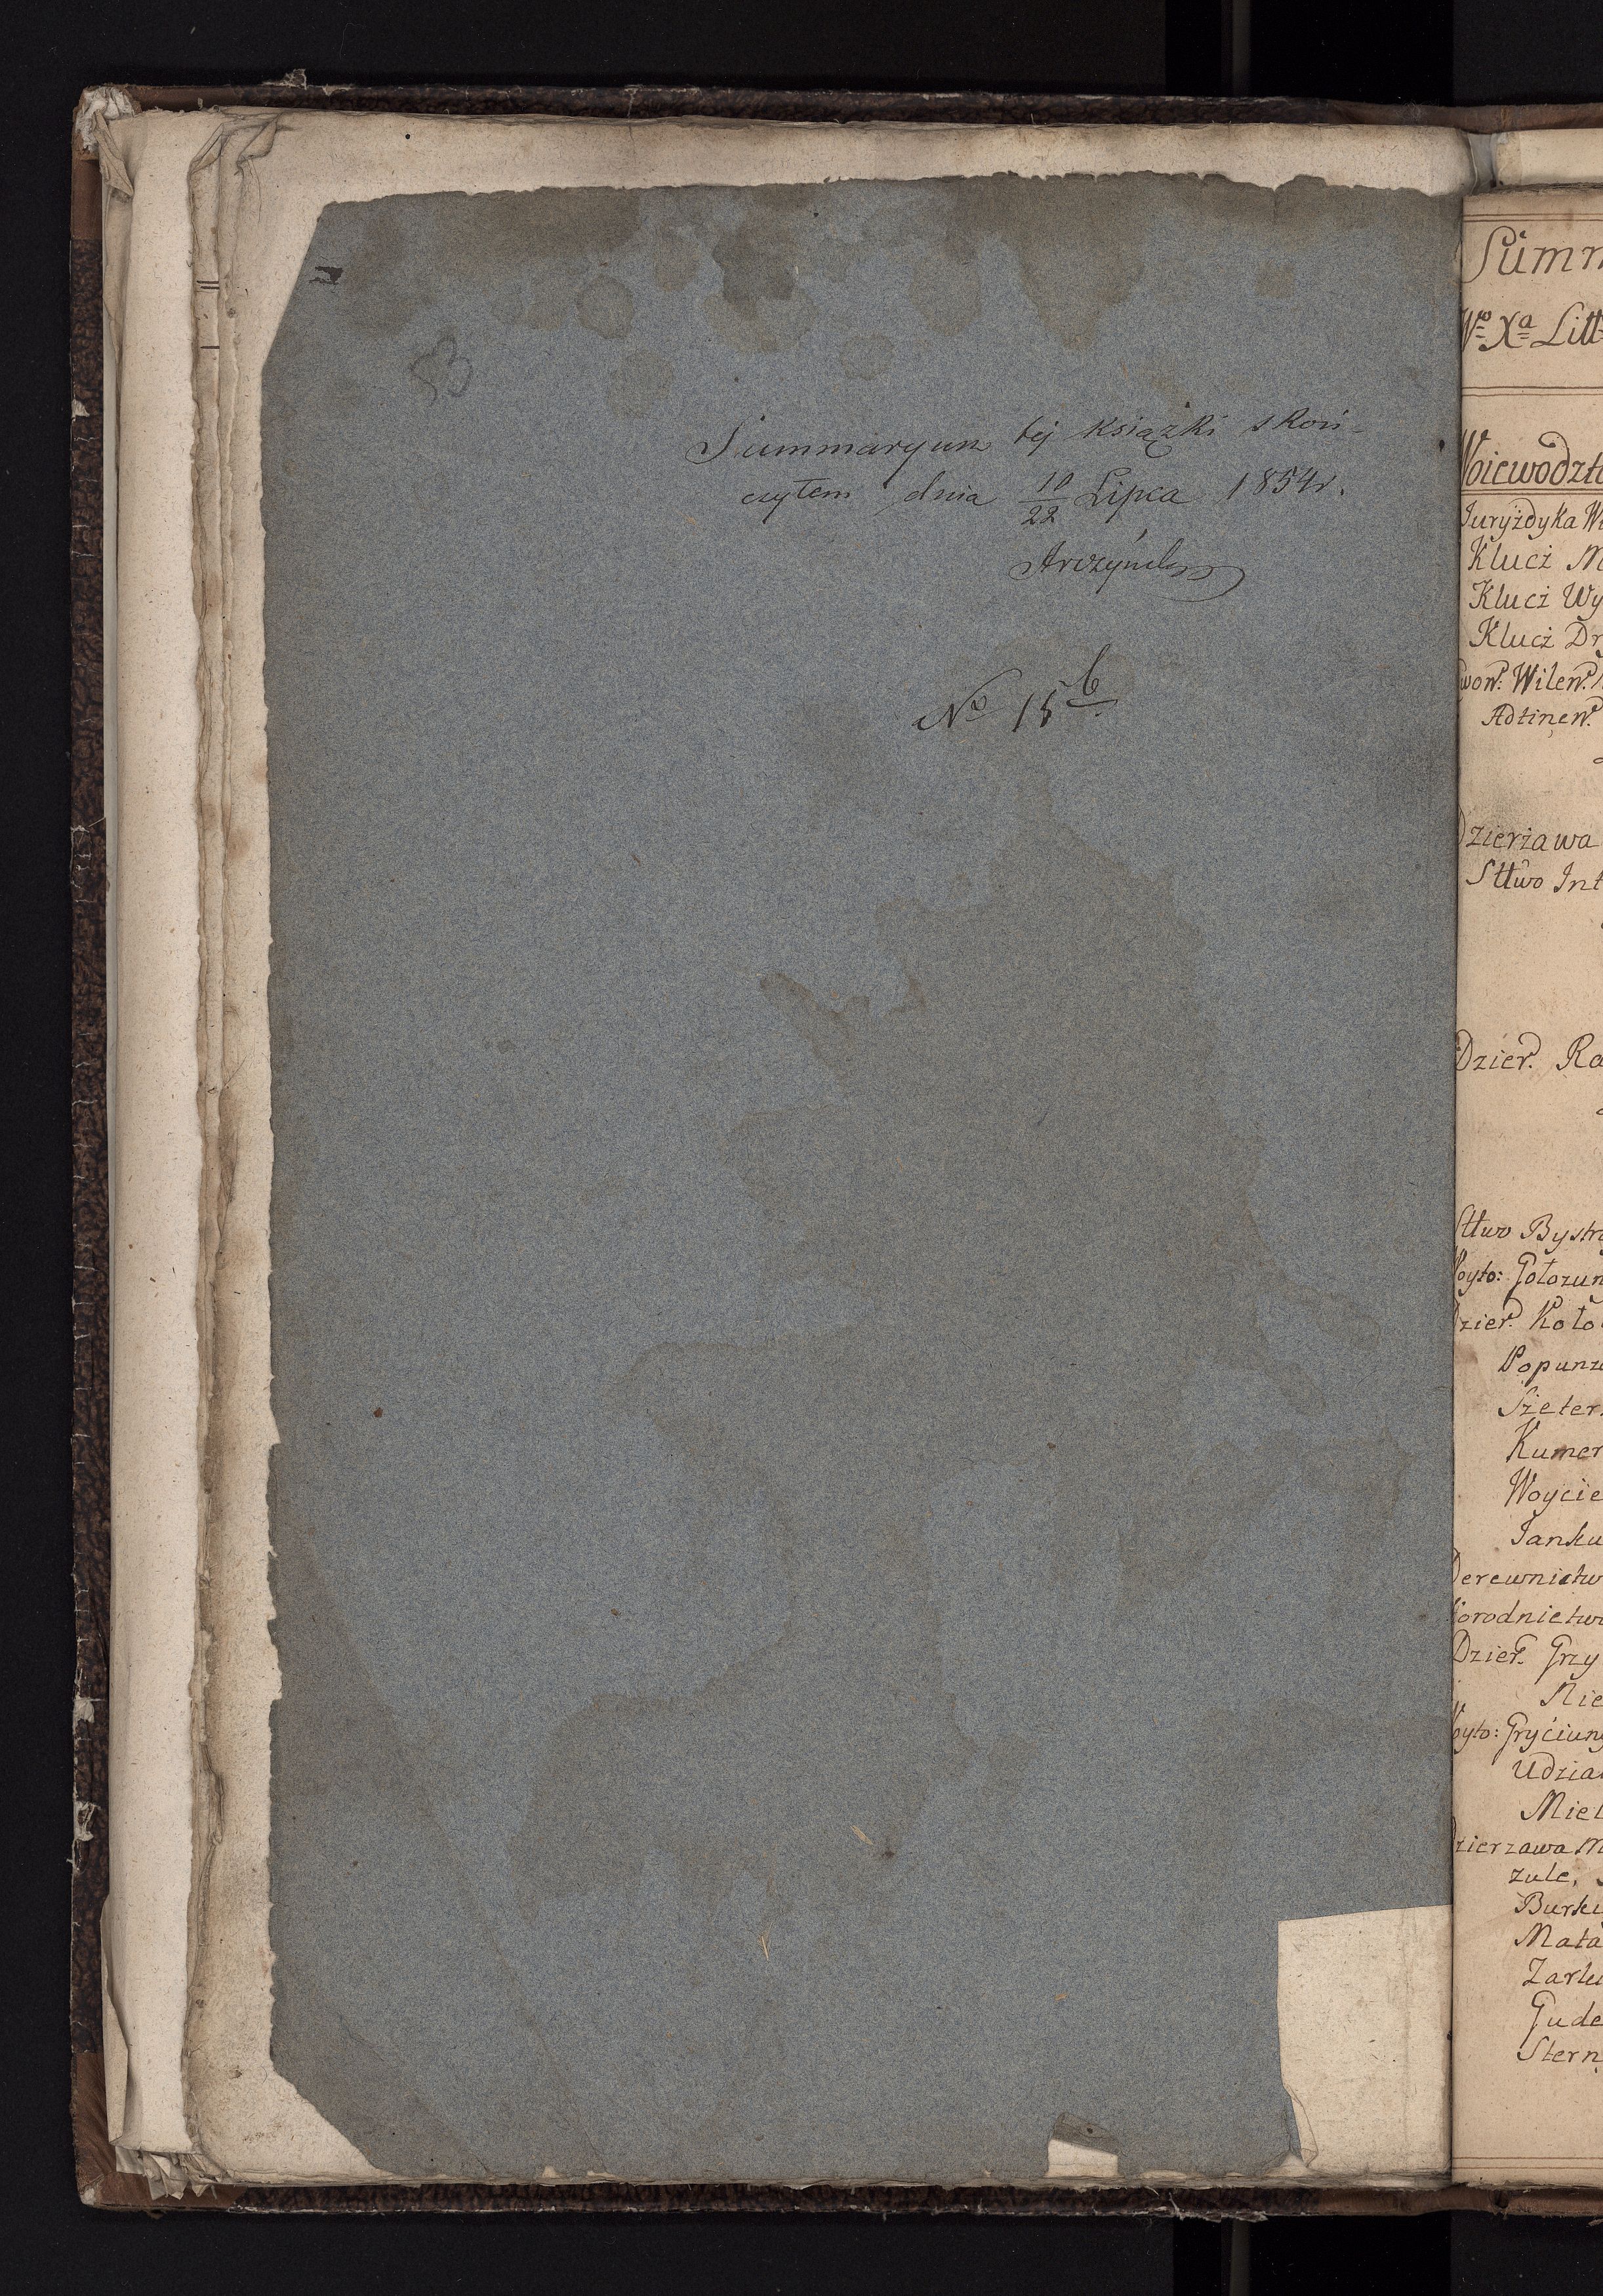 53
Summaryusz tej książki skoń-
czyłem dnia 10/22 Lipca 1854 r.
No 15 b
Summ
Wo Xa Litt
Woiewodzt
Juryżdyka Wi
Klucż M
Klucż Wy
Klucż Dr
Wilen.
Dzierżawa
Sttwo Int
Dzier. Ra
Sttwo Bystr
Woyto: Gołozun
Dzier. Koło
Popunz
Szeter
Kumer
Woycie
Janku
Derewnictw
Horodnictw
Dzier. Grzy
Nie
Woyto: Gryciun
Udzia
Miel
Dzierzawa M
zule,
Burki
Mata
Zarku
Gude
Stern